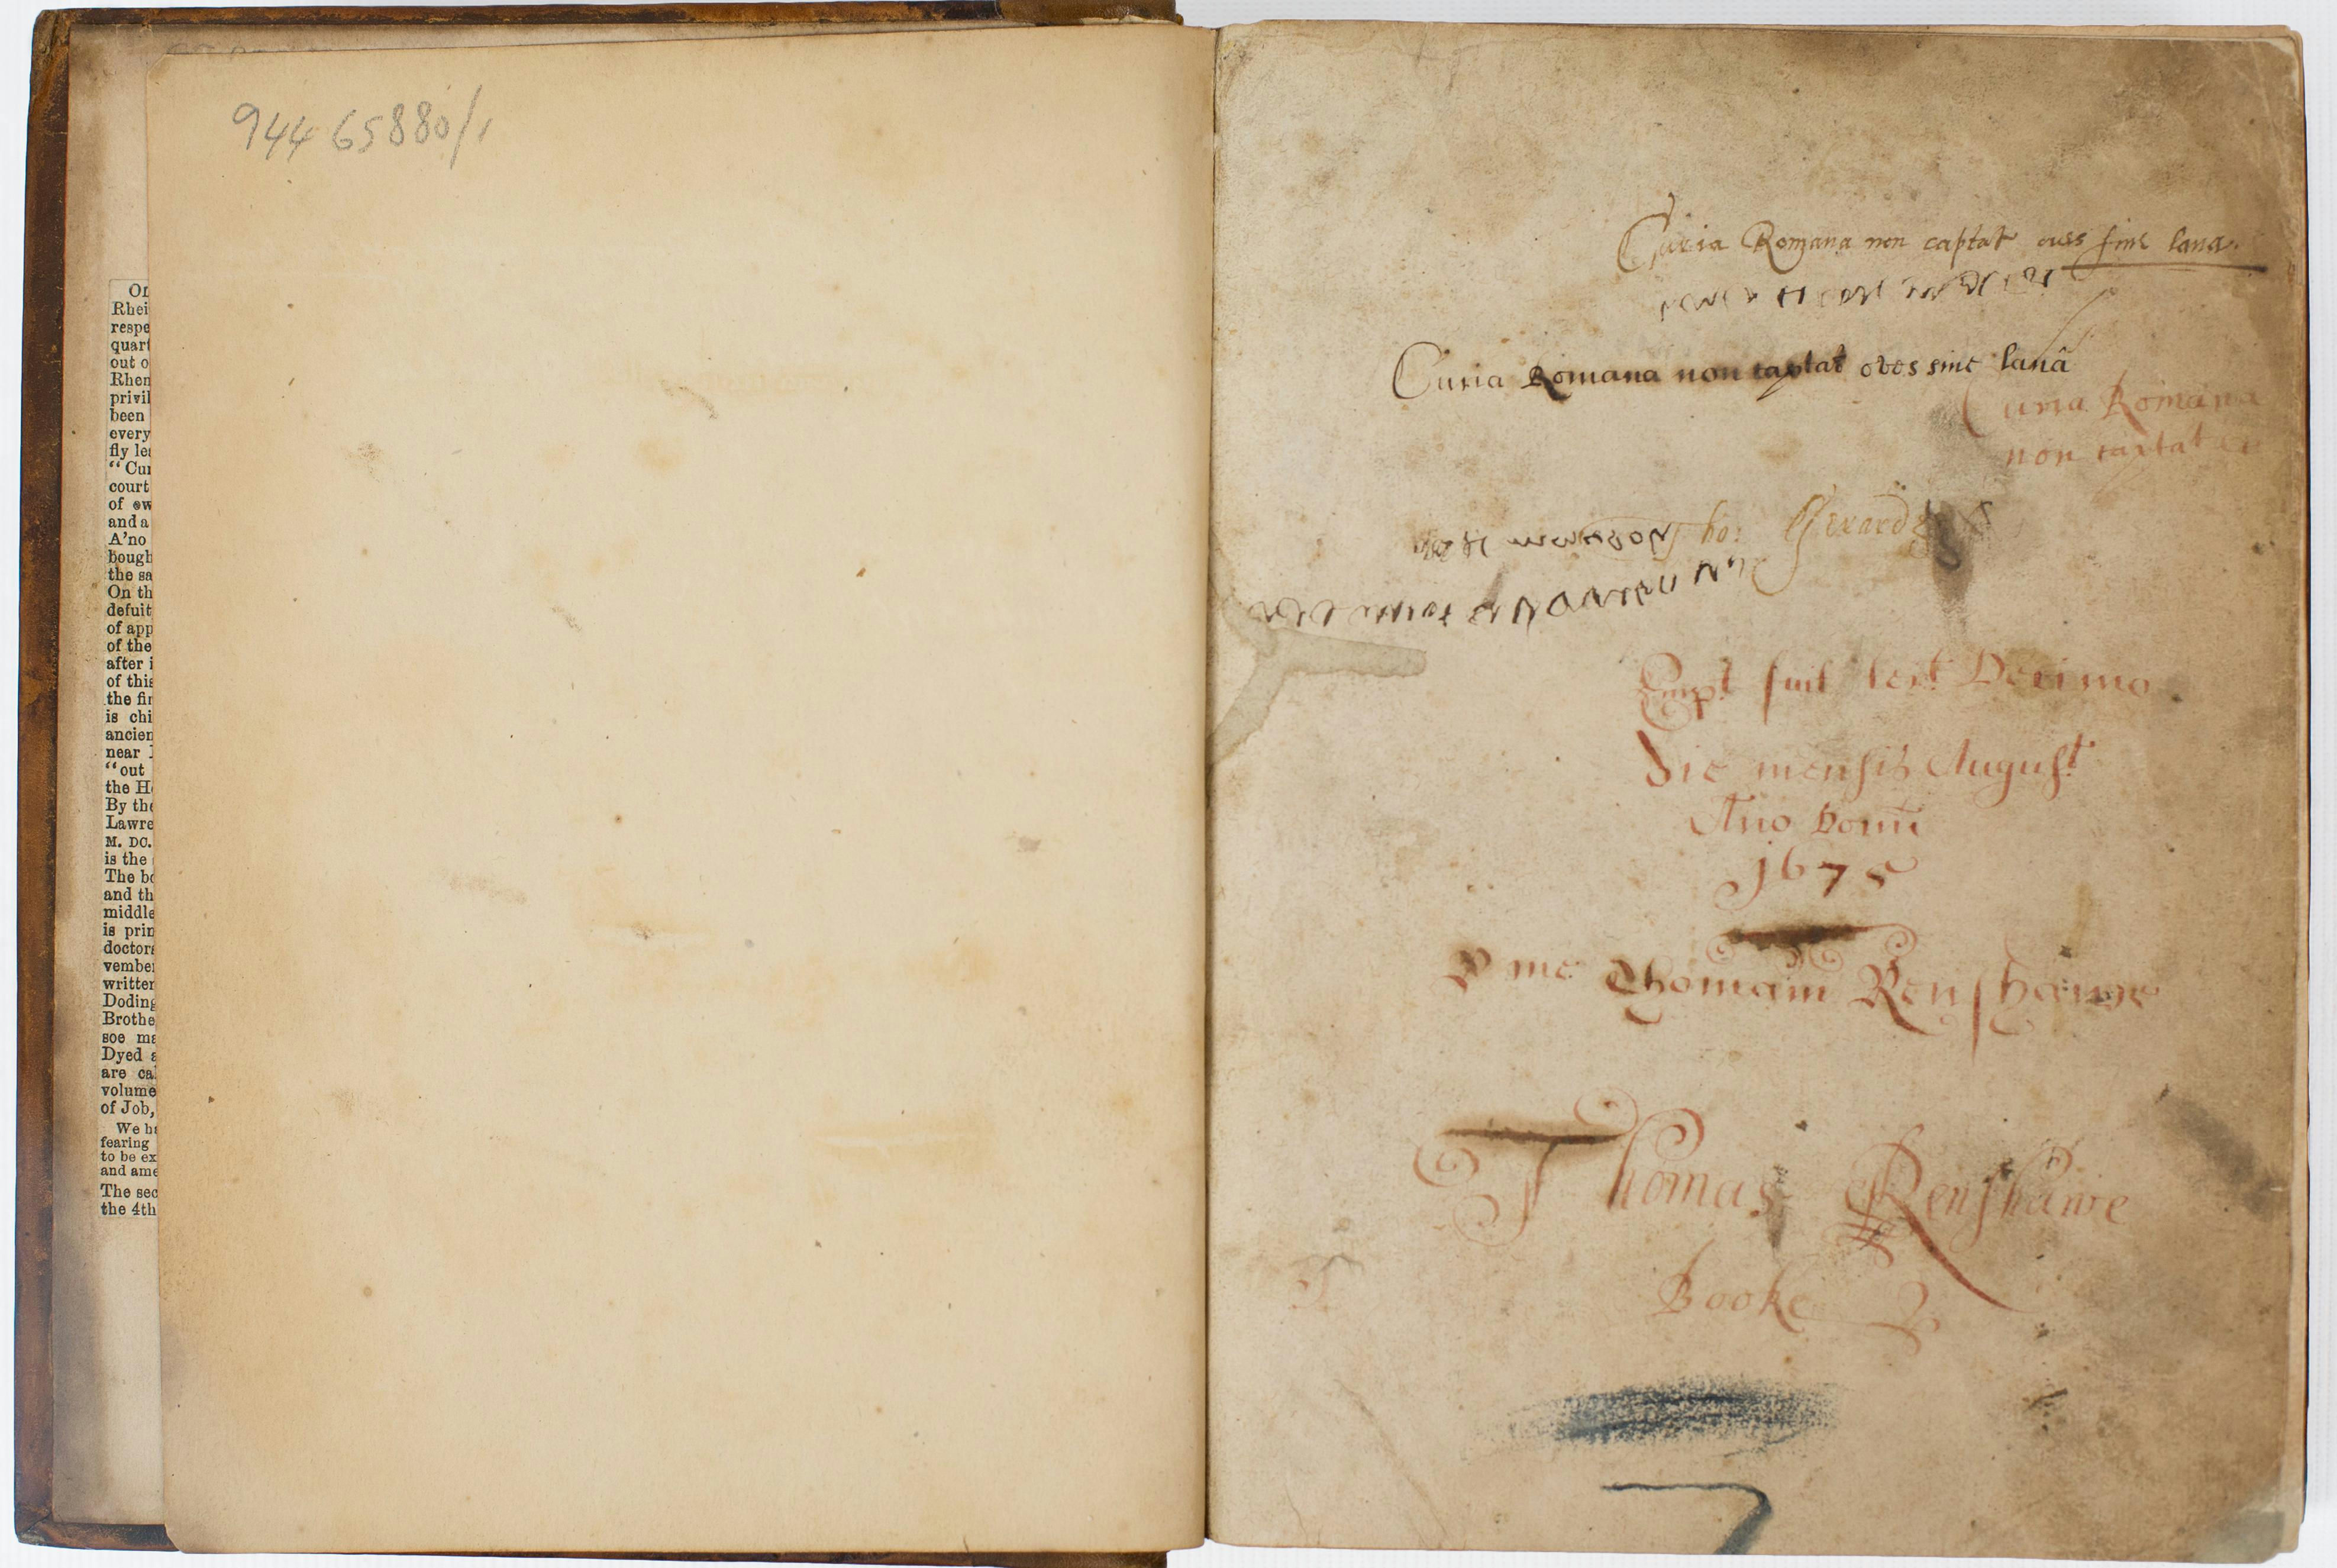 944 65880/1
Or
Rhei
respe
quart
out o
Rhen
privil
been
every
fly lea
"Cur
court
of ow
and a
A'no
bough
the sa
On th
defuit
of app
of the
after i
of this
the fir
is chi
ancien
near
"out
the H
By the
Lawre
M. DC.
is the
The bo
and th
middle
is prin
doctors
vember
written
Doding
Brothe
soe ma
Dyed a
are ca
volume
of Job,
We ha
fearing
to be ex
and ame
The sec
the 4th
Curia Romana non captat oues sine lana.
Curia Romana non captat oves sine lanâ
Curia Romana
non captat
Tho: Gerard
Empt fuit Decimo
Die mensis August
Ano Domi
1675
me Thomam Renshawe
Thomas Renshawe
Booke